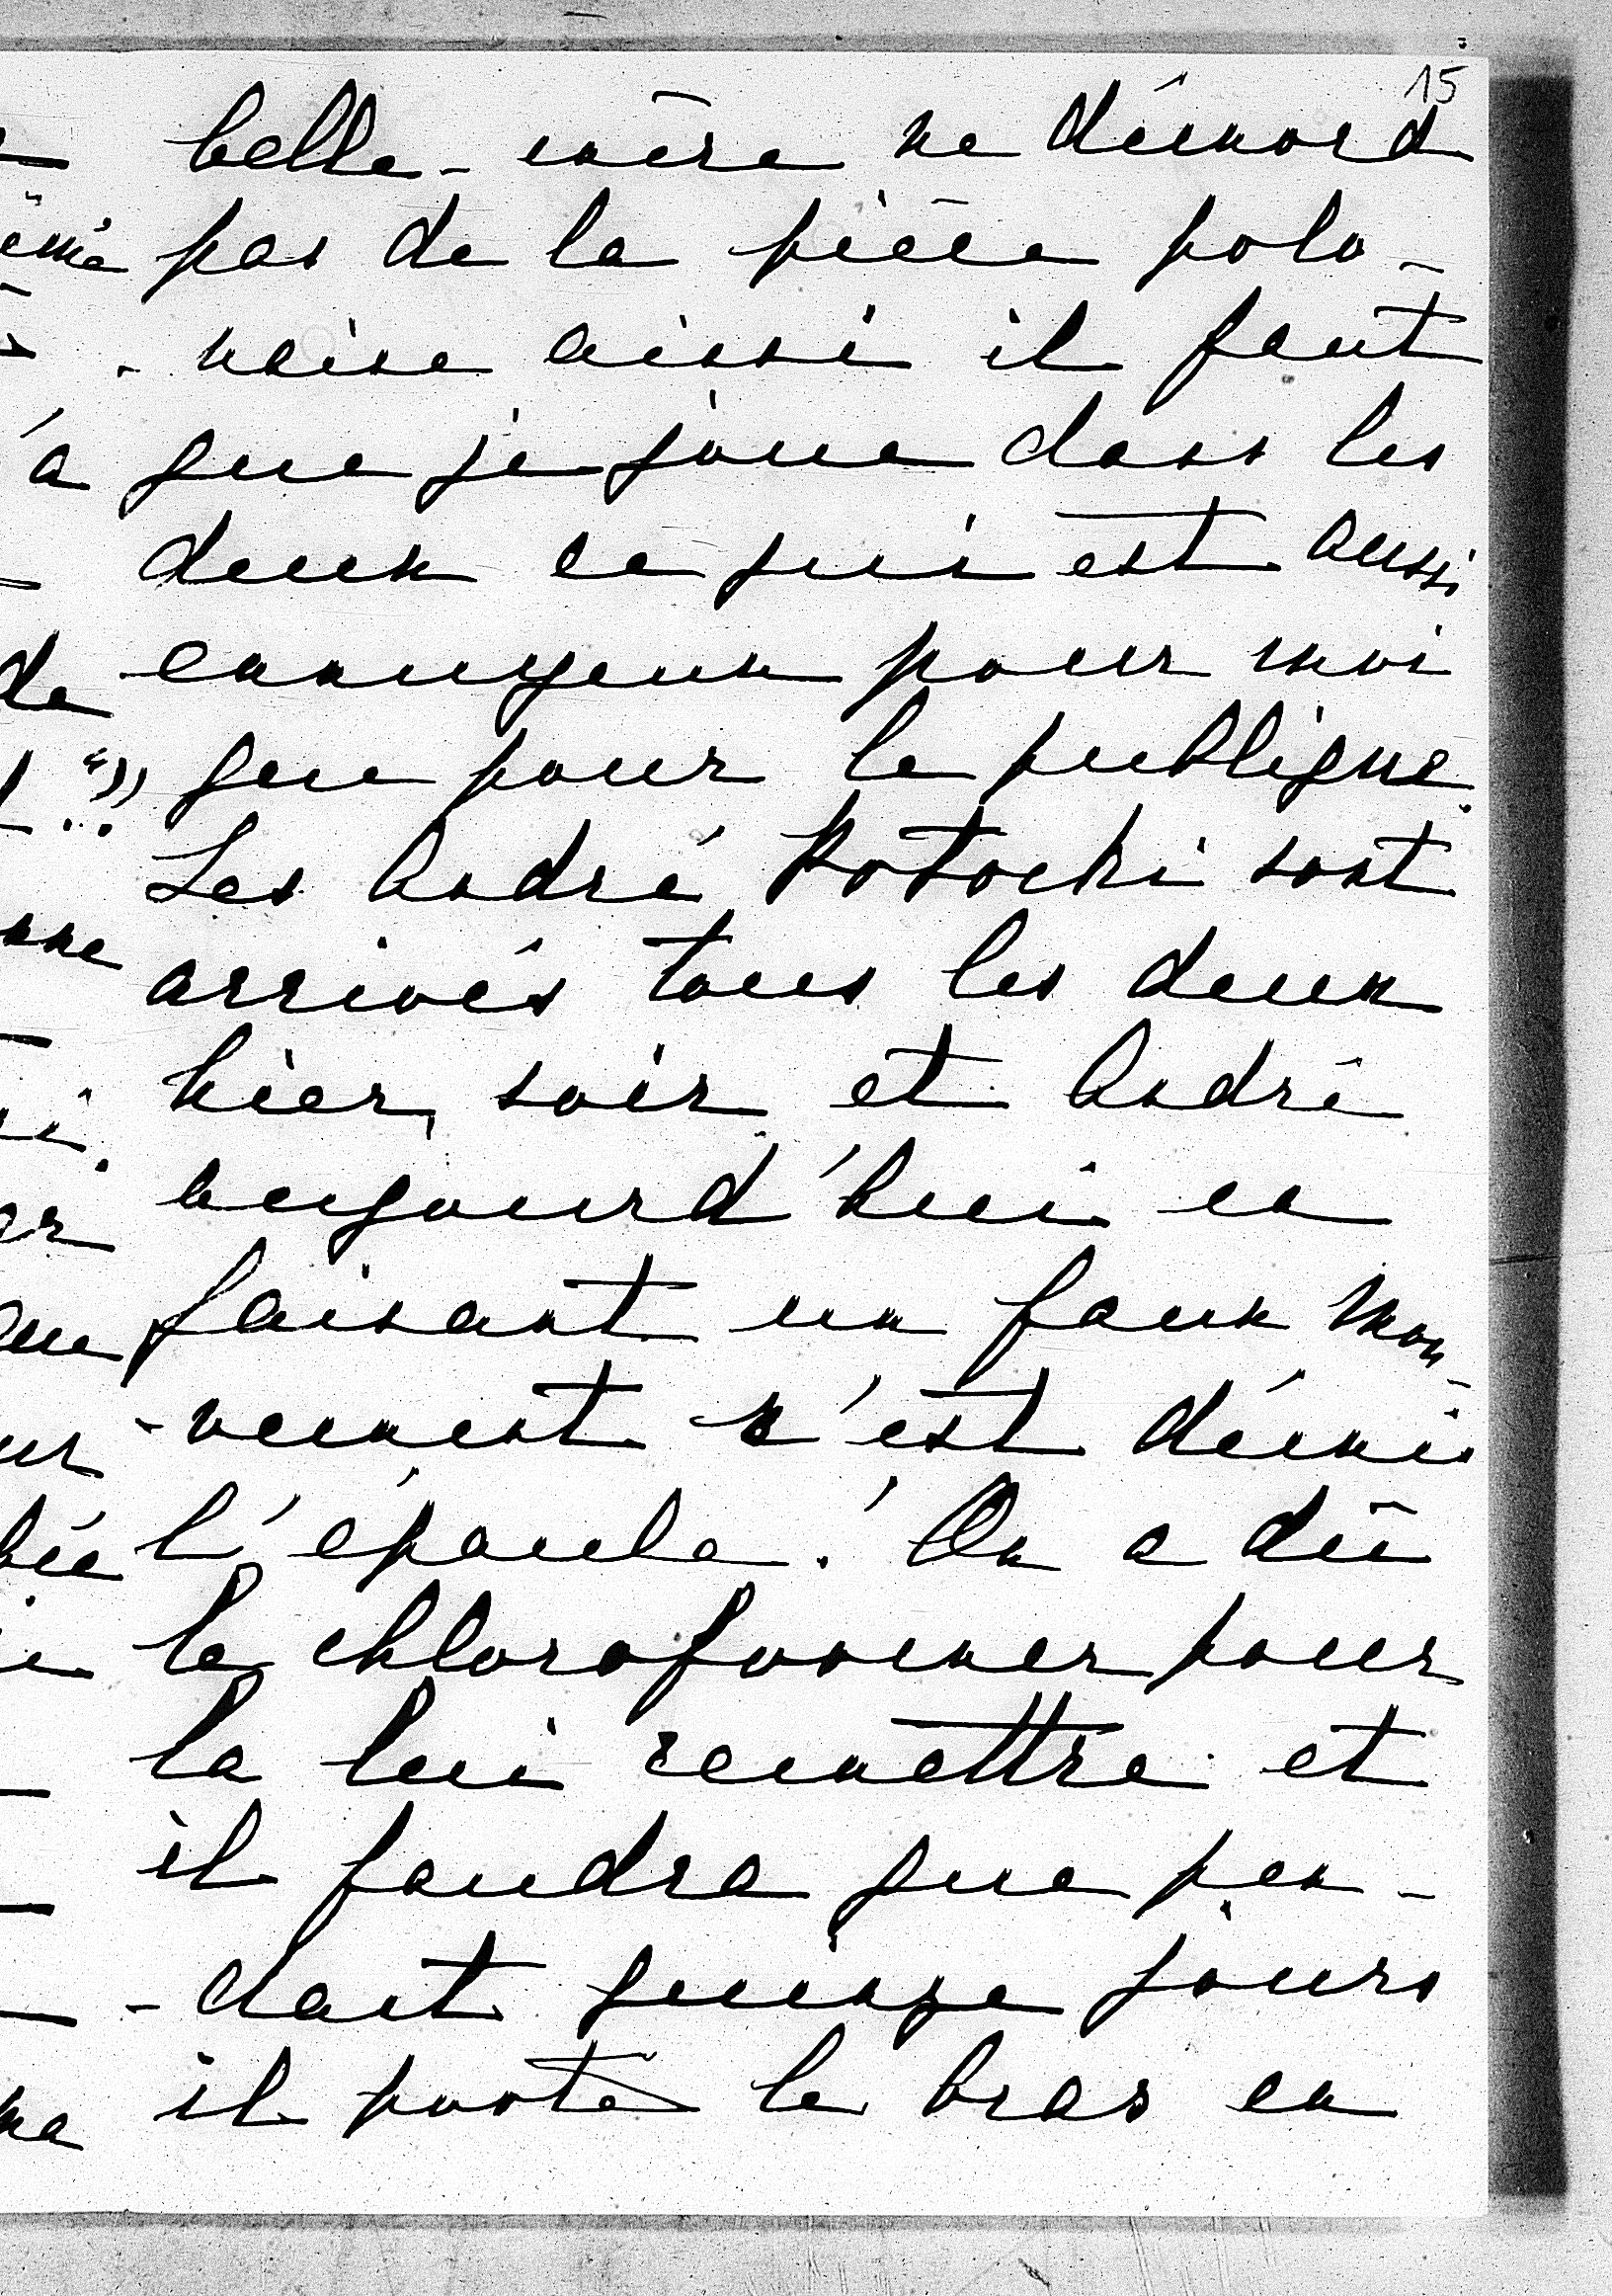 15
belle-mère ne démord
pas de la pièce polo-
-naise aissi il faut
que je joue dans les
deux ce qui est aussi
ennuyeux pour moi
que pour le publique.
Les André Potocki sont
arrivés tous les deux
hier, soir et André
aujourd'hui en
faisant un faux mou-
-vement s'est démis
l'épaule. On a dû
le chloroformer pour
la lui remettre et
il faudra que pen-
-dant quinze jours
il porte le bras en